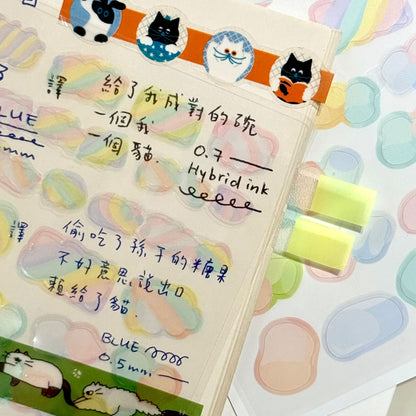 譯
給了我成對的碗
一個我
一個貓.
0.7
Hybrid ink
BLUE
mm
譯
偷吃了孫子的糖果
不好意思說出口
賴給了貓.
BLUE
0.5mm